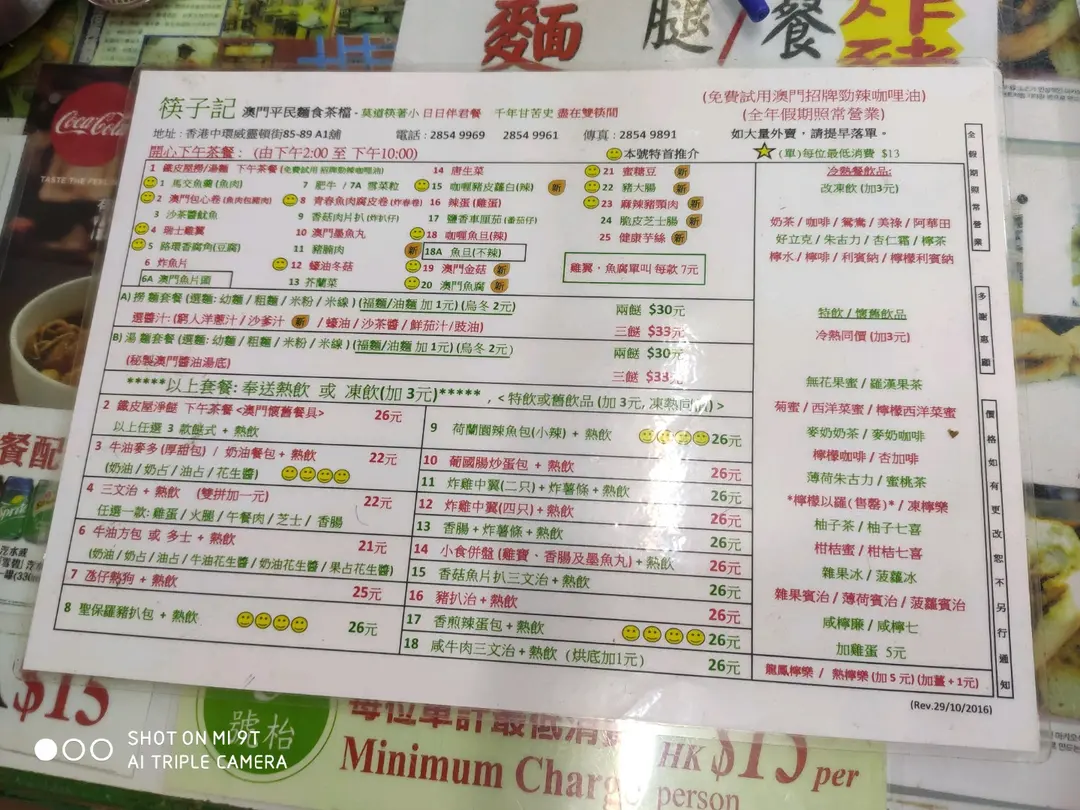 麵
腿/餐
炸
Coca-Cola
TASTE THE FEELING
筷子記 澳門平民麵食茶檔 - 莫道筷著小 日日伴君餐 千年甘苦史 盡在雙筷間
(免費試用澳門招牌勁辣咖哩油)
(全年假期照常營業)
地址 : 香港中環威靈頓街85-89 A1舖 電話 : 2854 9969 2854 9961 傳真 : 2854 9891
如大量外賣，請提早落單。
開心下午茶餐 : (由下午2:00 至 下午10:00)
本號特首推介
(單)每位最低消費 $13
1 鐵皮屋撈/湯麵 下午茶餐 (免費試用 招牌勁辣咖哩油)
1 馬交魚鰵 (魚肉)
2 澳門包心卷 (魚肉包豬肉)
3 沙茶醬魷魚
4 瑞士雞翼
5 路環香腐角(豆腐)
6 炸魚片
6A 澳門魚片頭
7 肥牛 / 7A 雪菜粒
8 青春魚肉腐皮卷 (炸春卷)
9 香菇肉片扒 (炸扒仔)
10 澳門墨魚丸
11 豬腩肉
12 蠔油冬菇
13 芥蘭菜
14 唐生菜
15 咖喱豬皮蘿白(辣) 新
16 辣蛋 (雞蛋)
17 鹽香車厘茄(番茄仔)
18 咖喱魚旦(辣)
新 18A 魚旦(不辣)
19 澳門金菇 新
20 澳門魚腐 新
21 蜜糖豆 新
22 豬大腸 新
23 麻辣豬頸肉 新
24 脆皮芝士腸 新
25 健康芋絲 新
雞翼、魚腐單叫 每款 7元
A) 撈 麵套餐 (選麵: 幼麵 / 粗麵 / 米粉 / 米線 ) (福麵/油麵 加 1元) (烏冬 2元) 兩餸 $30元
選醬汁: (窮人洋蔥汁 / 沙爹汁 新 / 蠔油 / 沙茶醬 / 鮮茄汁 / 豉油) 三餸 $33元
B) 湯 麵套餐 (選麵: 幼麵 / 粗麵 / 米粉 / 米線 ) (福麵/油麵 加 1元) (烏冬 2元) 兩餸 $30元
(秘製澳門醬油湯底) 三餸 $33元
*****以上套餐: 奉送熱飲 或 凍飲(加 3元)***** , < 特飲或舊飲品 (加 3元, 凍熱同價) >
2 鐵皮屋淨餸 下午茶餐 <澳門懷舊餐具> 26元
以上任選 3 款餸式 + 熱飲
3 牛油麥多 (厚甜包) / 奶油餐包 + 熱飲 22元
(奶油 / 奶占 / 油占 / 花生醬)
4 三文治 + 熱飲 (雙拼加一元) 22元
任選一款: 雞蛋 / 火腿 / 午餐肉 / 芝士 / 香腸
6 牛油方包 或 多士 + 熱飲 21元
(奶油 / 奶占 / 油占 / 牛油花生醬 / 奶油花生醬 / 果占花生醬)
7 氹仔熱狗 + 熱飲 25元
8 聖保羅豬扒包 + 熱飲 26元
9 荷蘭園辣魚包(小辣) + 熱飲 26元
10 葡國腸炒蛋包 + 熱飲 26元
11 炸雞中翼(二只) + 炸薯條 + 熱飲 26元
12 炸雞中翼(四只) + 熱飲 26元
13 香腸 + 炸薯條 + 熱飲 26元
14 小食併盤 (雞寶、香腸及墨魚丸) + 熱飲 26元
15 香菇魚片扒三文治 + 熱飲 26元
16 豬扒治 + 熱飲 26元
17 香煎辣蛋包 + 熱飲 26元
18 咸牛肉三文治 + 熱飲 (烘底加1元) 26元
冷熱餐飲品:
改凍飲 (加3元)
奶茶 / 咖啡 / 鴛鴦 / 美祿 / 阿華田
好立克 / 朱古力 / 杏仁霜 / 檸茶
檸水 / 檸啡 / 利賓納 / 檸檬利賓納
特飲 / 懷舊飲品
冷熱同價 (加3元)
無花果蜜 / 羅漢果茶
菊蜜 / 西洋菜蜜 / 檸檬西洋菜蜜
麥奶奶茶 / 麥奶咖啡
檸檬咖啡 / 杏加啡
薄荷朱古力 / 蜜桃茶
*檸檬以羅(售罄)* / 凍檸樂
柚子茶 / 柚子七喜
柑桔蜜 / 柑桔七喜
雜果冰 / 菠蘿冰
雜果賓治 / 薄荷賓治 / 菠蘿賓治
咸檸廉 / 咸檸七
加雞蛋 5元
龍鳳檸樂 / 熱檸樂 (加 5 元) (加薑 + 1元)
全年假期照常營業
多謝惠顧
價格如有更改恕不另行通知
(Rev.29/10/2016)
餐配
Sprite
$15
號枱
每位單計最低消費
Minimum Charge HK $15 per
person
SHOT ON MI 9T
AI TRIPLE CAMERA